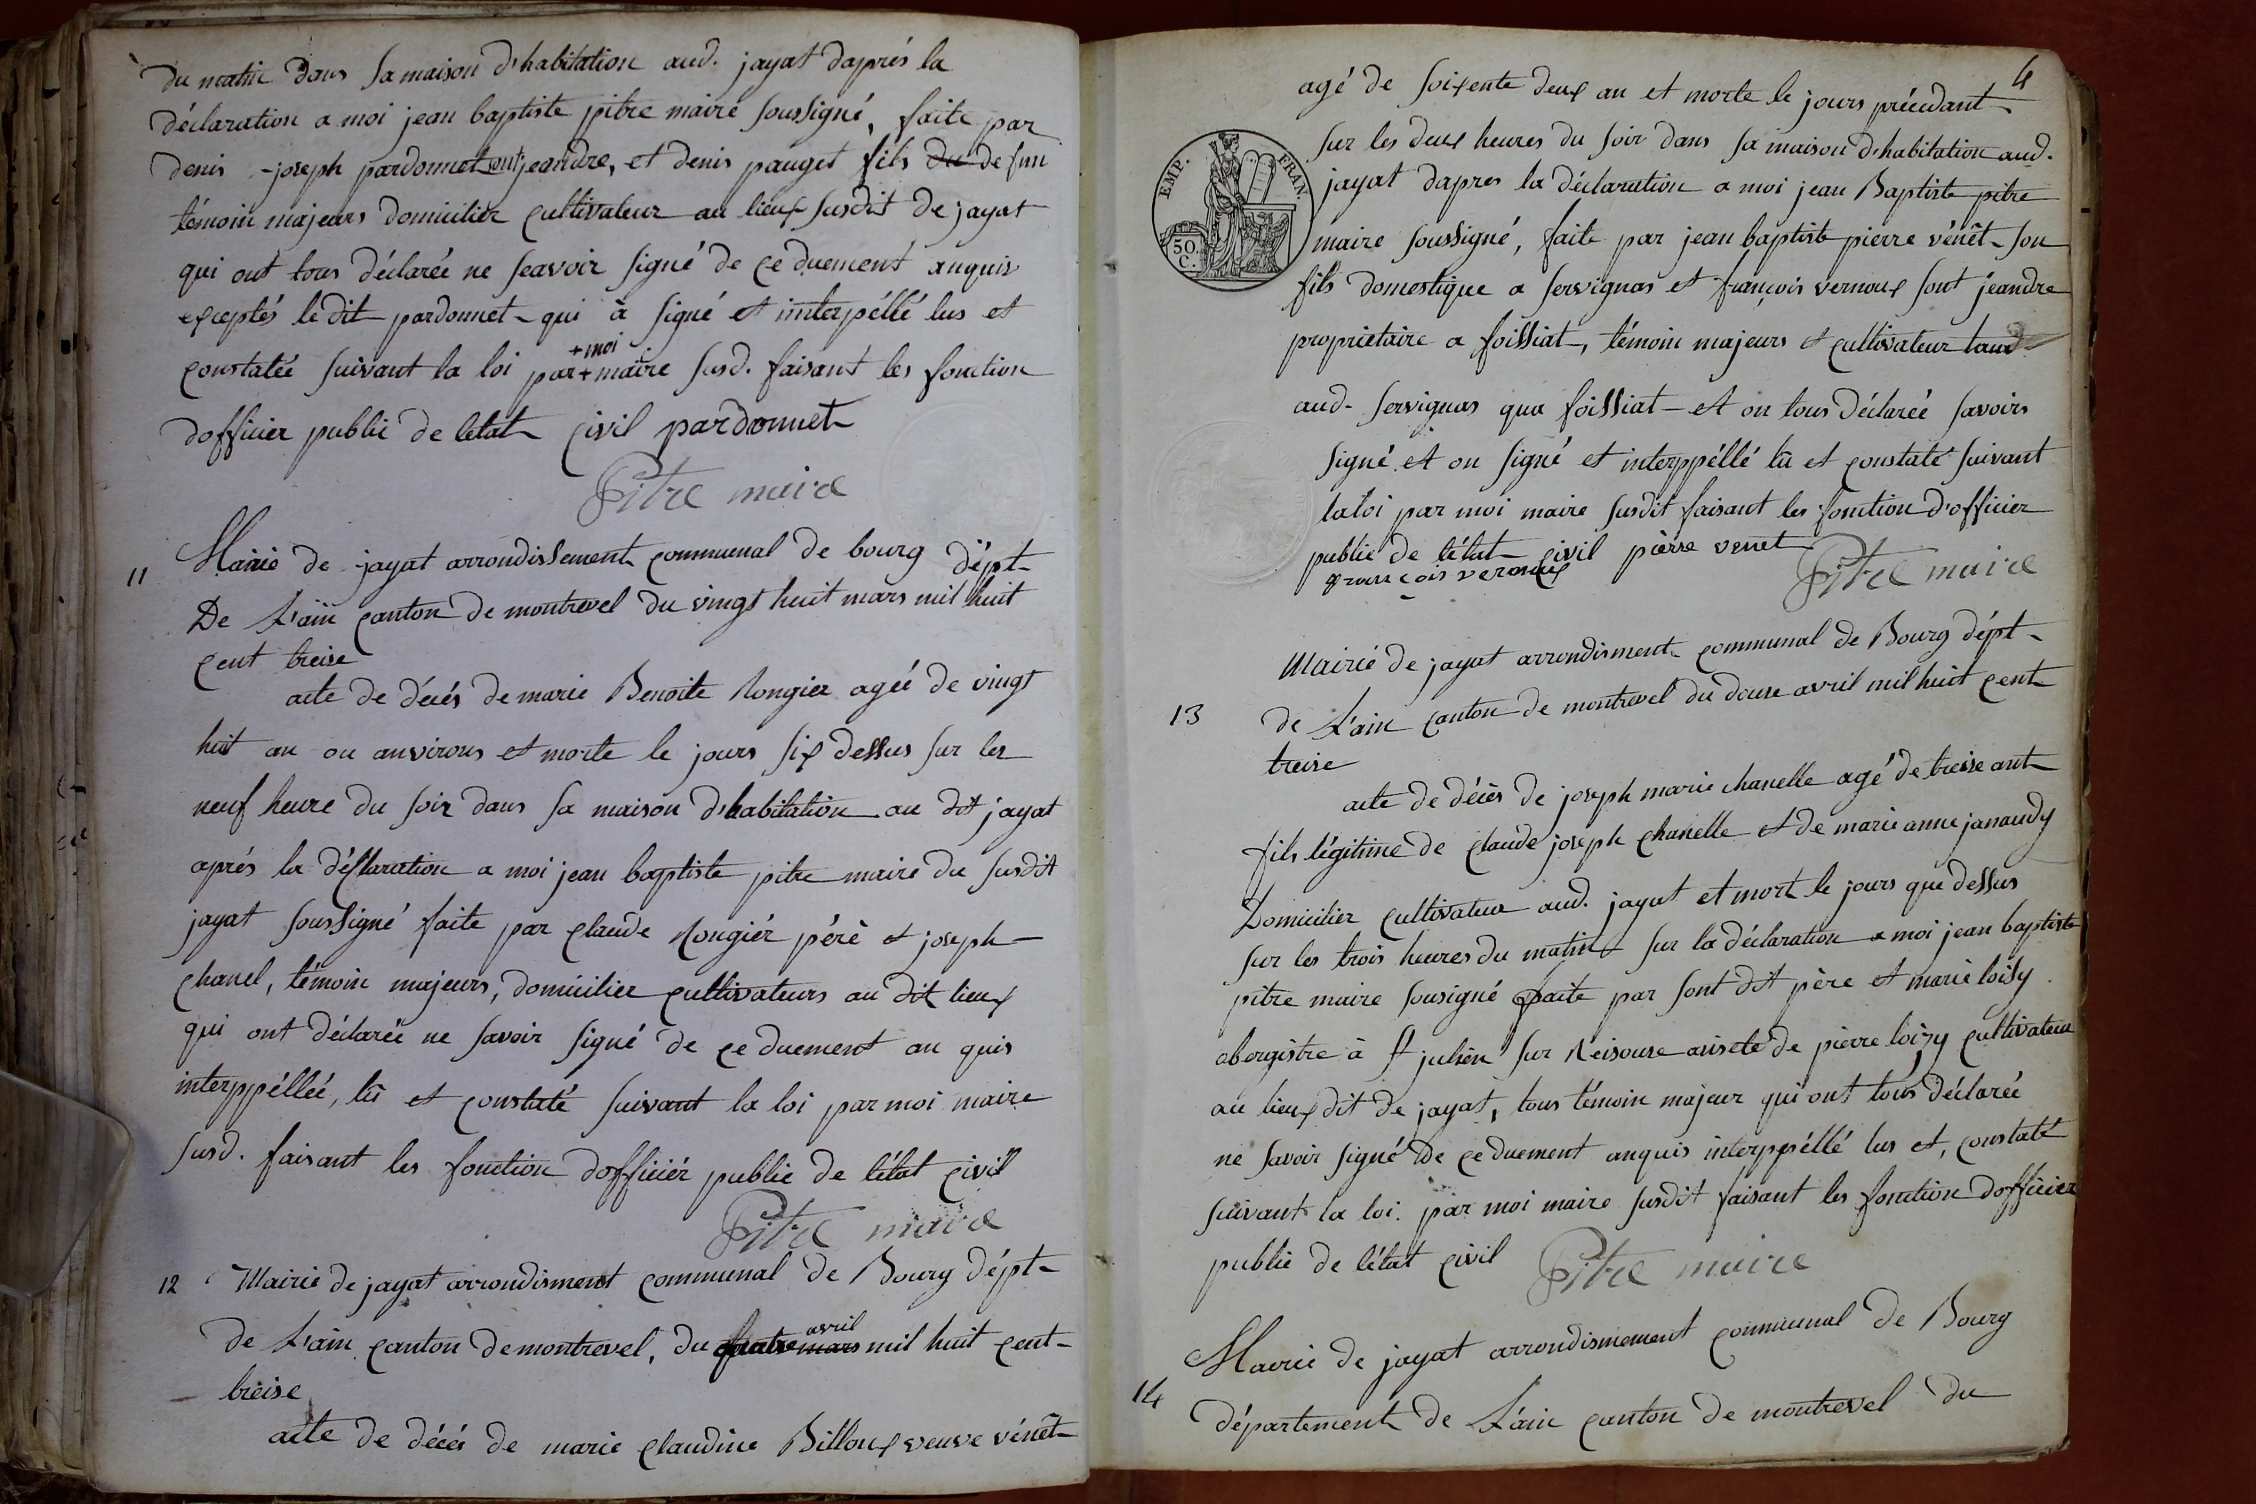 du matin dans sa maison d'habitation aud. jayat daprés la
déclaration a moi jean baptiste pitre maire soussigné, faite par
denis joseph pardonnet sont jeandre, et denis pauget fils du defun
témoin majeurs domicilier cultivateur au lieux susdit de jayat
qui ont tous déclarée ne seavoir signé de ce duement anquis
exceptés le dit pardonnet qui à signé et interpéllé lus et
constatée suivant la loi par + maire susd. faisant les fonction
+ moi
dofficier public de letat civil pardonnet
Pitre maire
11
Mairie de jayat arrondissement communal de bourg dépt
De L'ain canton de montrevel du vingt huit mars mil huit
cent treise
acte de décés de marie Benoite Rongier agée de vingt
huit an ou anvirons et morte le jours six dessus sur les
neuf heure du soir dans sa maison d'habitation au dit jayat
aprés la déclaration a moi jean baptiste pitre maire du susdit
jayat soussigné faite par claude Rongiér péré et joseph
chanel, témoin majeurs, domicilier cultivateurs au dit lieux
qui ont déclarée ne savoir signé de ce duement an quis
interppéllée, lu et constaté suivant la loi par moi maire
susd. faisant les fonction dofficiér public de l'état civil
Pitre maire
12
Mairie de jayat arrondisment communal de Bourg dépt
de L'ain canton de montrevel, du quatre mars avril mil huit cent
treise
acte de décés de marie claudine Billoux veuve vénêt
4
agé de soixente deux an et morte le jours précédant
sur les deux heures du soir dans sa maison d'habitation aud.
EMP. FRAN.
50.
C.
jayat dapres la déclaration a moi jean Baptiste pitre
maire soussigné, faite par jean baptiste pierre vénêt son
fils domestique a servignas et françois vernoux sont jéandre
proprietaire a foissiat, témoin majeurs et cultivateur tand
aud. servignas qua foissiat et on tous déclarée savoirs
signé et on signé et interppéllé lu et constaté suivant
la loi par moi maire susdit faisant les fonction d'officier
public de l'état civil pièrre venet
françois vernoux
Pitre maire
13
Mairie de jayat arrondisment communal de Bourg dépt
de L'ain canton de montrevel du douse avril mil huit cent
treise
acte de décès de joseph marie chanelle agé de treise ant
fils légitime de claude joseph chanelle et de marie anne janaudy
Domicilier cultivateur aud. jayat et mort le jours que dessus
sur les trois heures du matin sur la déclaration a moi jean baptiste
pitre maire sousigné faite par sont dit père et marie loisy
abergistre à st julien sur Reisouse assisté de pierre loizy cultivateur
au lieux dit de jayat, tous témoin majeur qui ont tous déclarée
ne savoir signé de ce duement anquis interppéllé lus et, constaté
suivant la loi. par moi maire susdit faisant les fonction dofficier
public de l'état civil Pitre maire
14
Mairie de jayat arrondismement communal de Bourg
département de L'ain canton de montrevel du